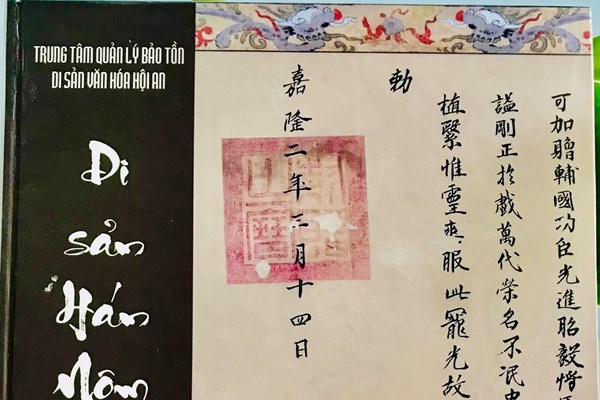 TRUNG TÂM QUẢN LÝ BẢO TỒN
DI SẢN VĂN HÓA HỘI AN
Di
sản
Hán
Nôm
可加贈輔國功臣光進昭毅
謚剛正於戲萬代榮名不泯
植繄惟靈爽服此寵光故
勅
嘉隆二年三月十四日